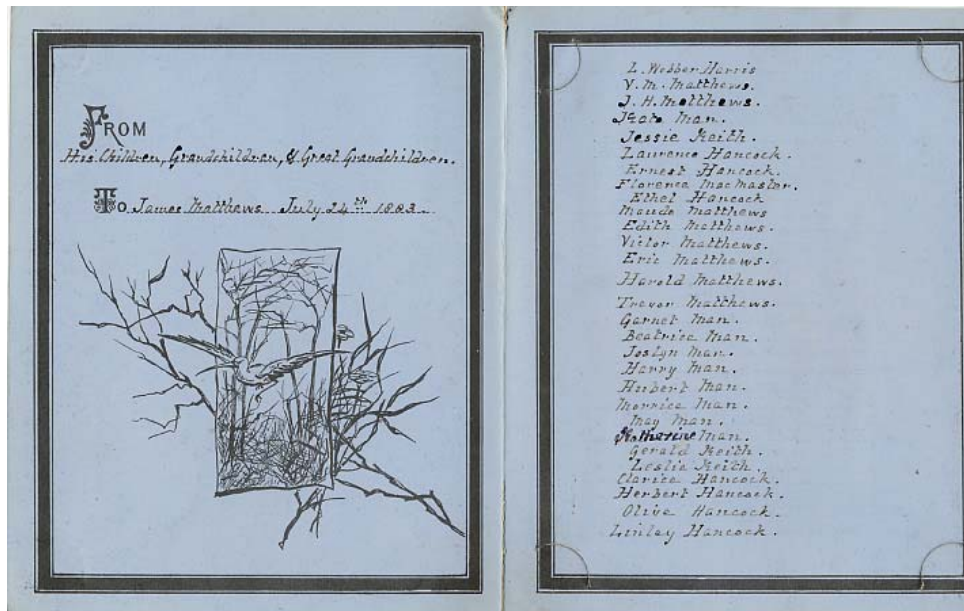 FROM
His Children, Grandchildren, & Great Grandchildren.
To James Matthews July 24th 1883.
L. Webber Harris
V. M. Matthews.
J. H. Matthews.
Kate Man.
Jessie Keith.
Laurence Hancock.
Ernest Hancock.
Florence MacMaster.
Ethel Hancock
Maude Matthews
Edith Matthews.
Victor Matthews.
Eric Matthews.
Harold Matthews.
Trevor Matthews.
Garnet Man.
Beatrice Man.
Joslyn Man.
Harry Man.
Hubert Man.
Morrice Man.
May Man.
Katherine Man.
Gerald Keith.
Leslie Keith.
Clarice Hancock.
Herbert Hancock.
Olive Hancock.
Linlay Hancock.